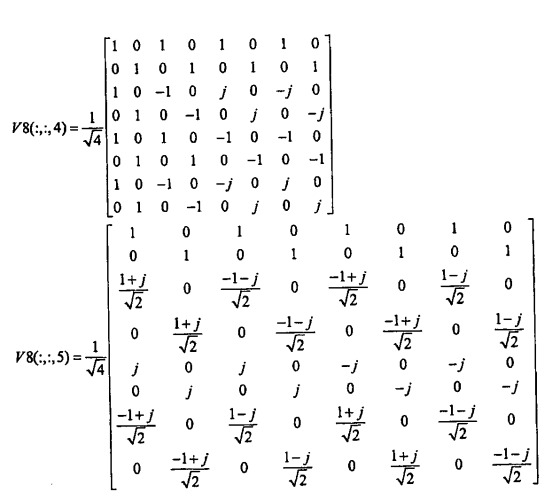 1 0 1 0 1 0 1 0
0 1 0 1 0 1 0 1
1 0 -1 0 j 0 -j 0
V8(:,:,4) = 1/√4 0 1 0 -1 0 j 0 -j
1 0 1 0 -1 0 -1 0
0 1 0 1 0 -1 0 -1
1 0 -1 0 -j 0 j 0
0 1 0 -1 0 j 0 j
1 0 1 0 1 0 1 0
0 1 0 1 0 1 0 1
1+j/√2 0 -1-j/√2 0 -1+j/√2 0 1-j/√2 0
0 1+j/√2 0 -1-j/√2 0 -1+j/√2 0 1-j/√2
V8(:,:,5) = 1/√4 j 0 j 0 -j 0 -j 0
0 j 0 j 0 -j 0 -j
-1+j/√2 0 1-j/√2 0 1+j/√2 0 -1-j/√2 0
0 -1+j/√2 0 1-j/√2 0 1+j/√2 0 -1-j/√2